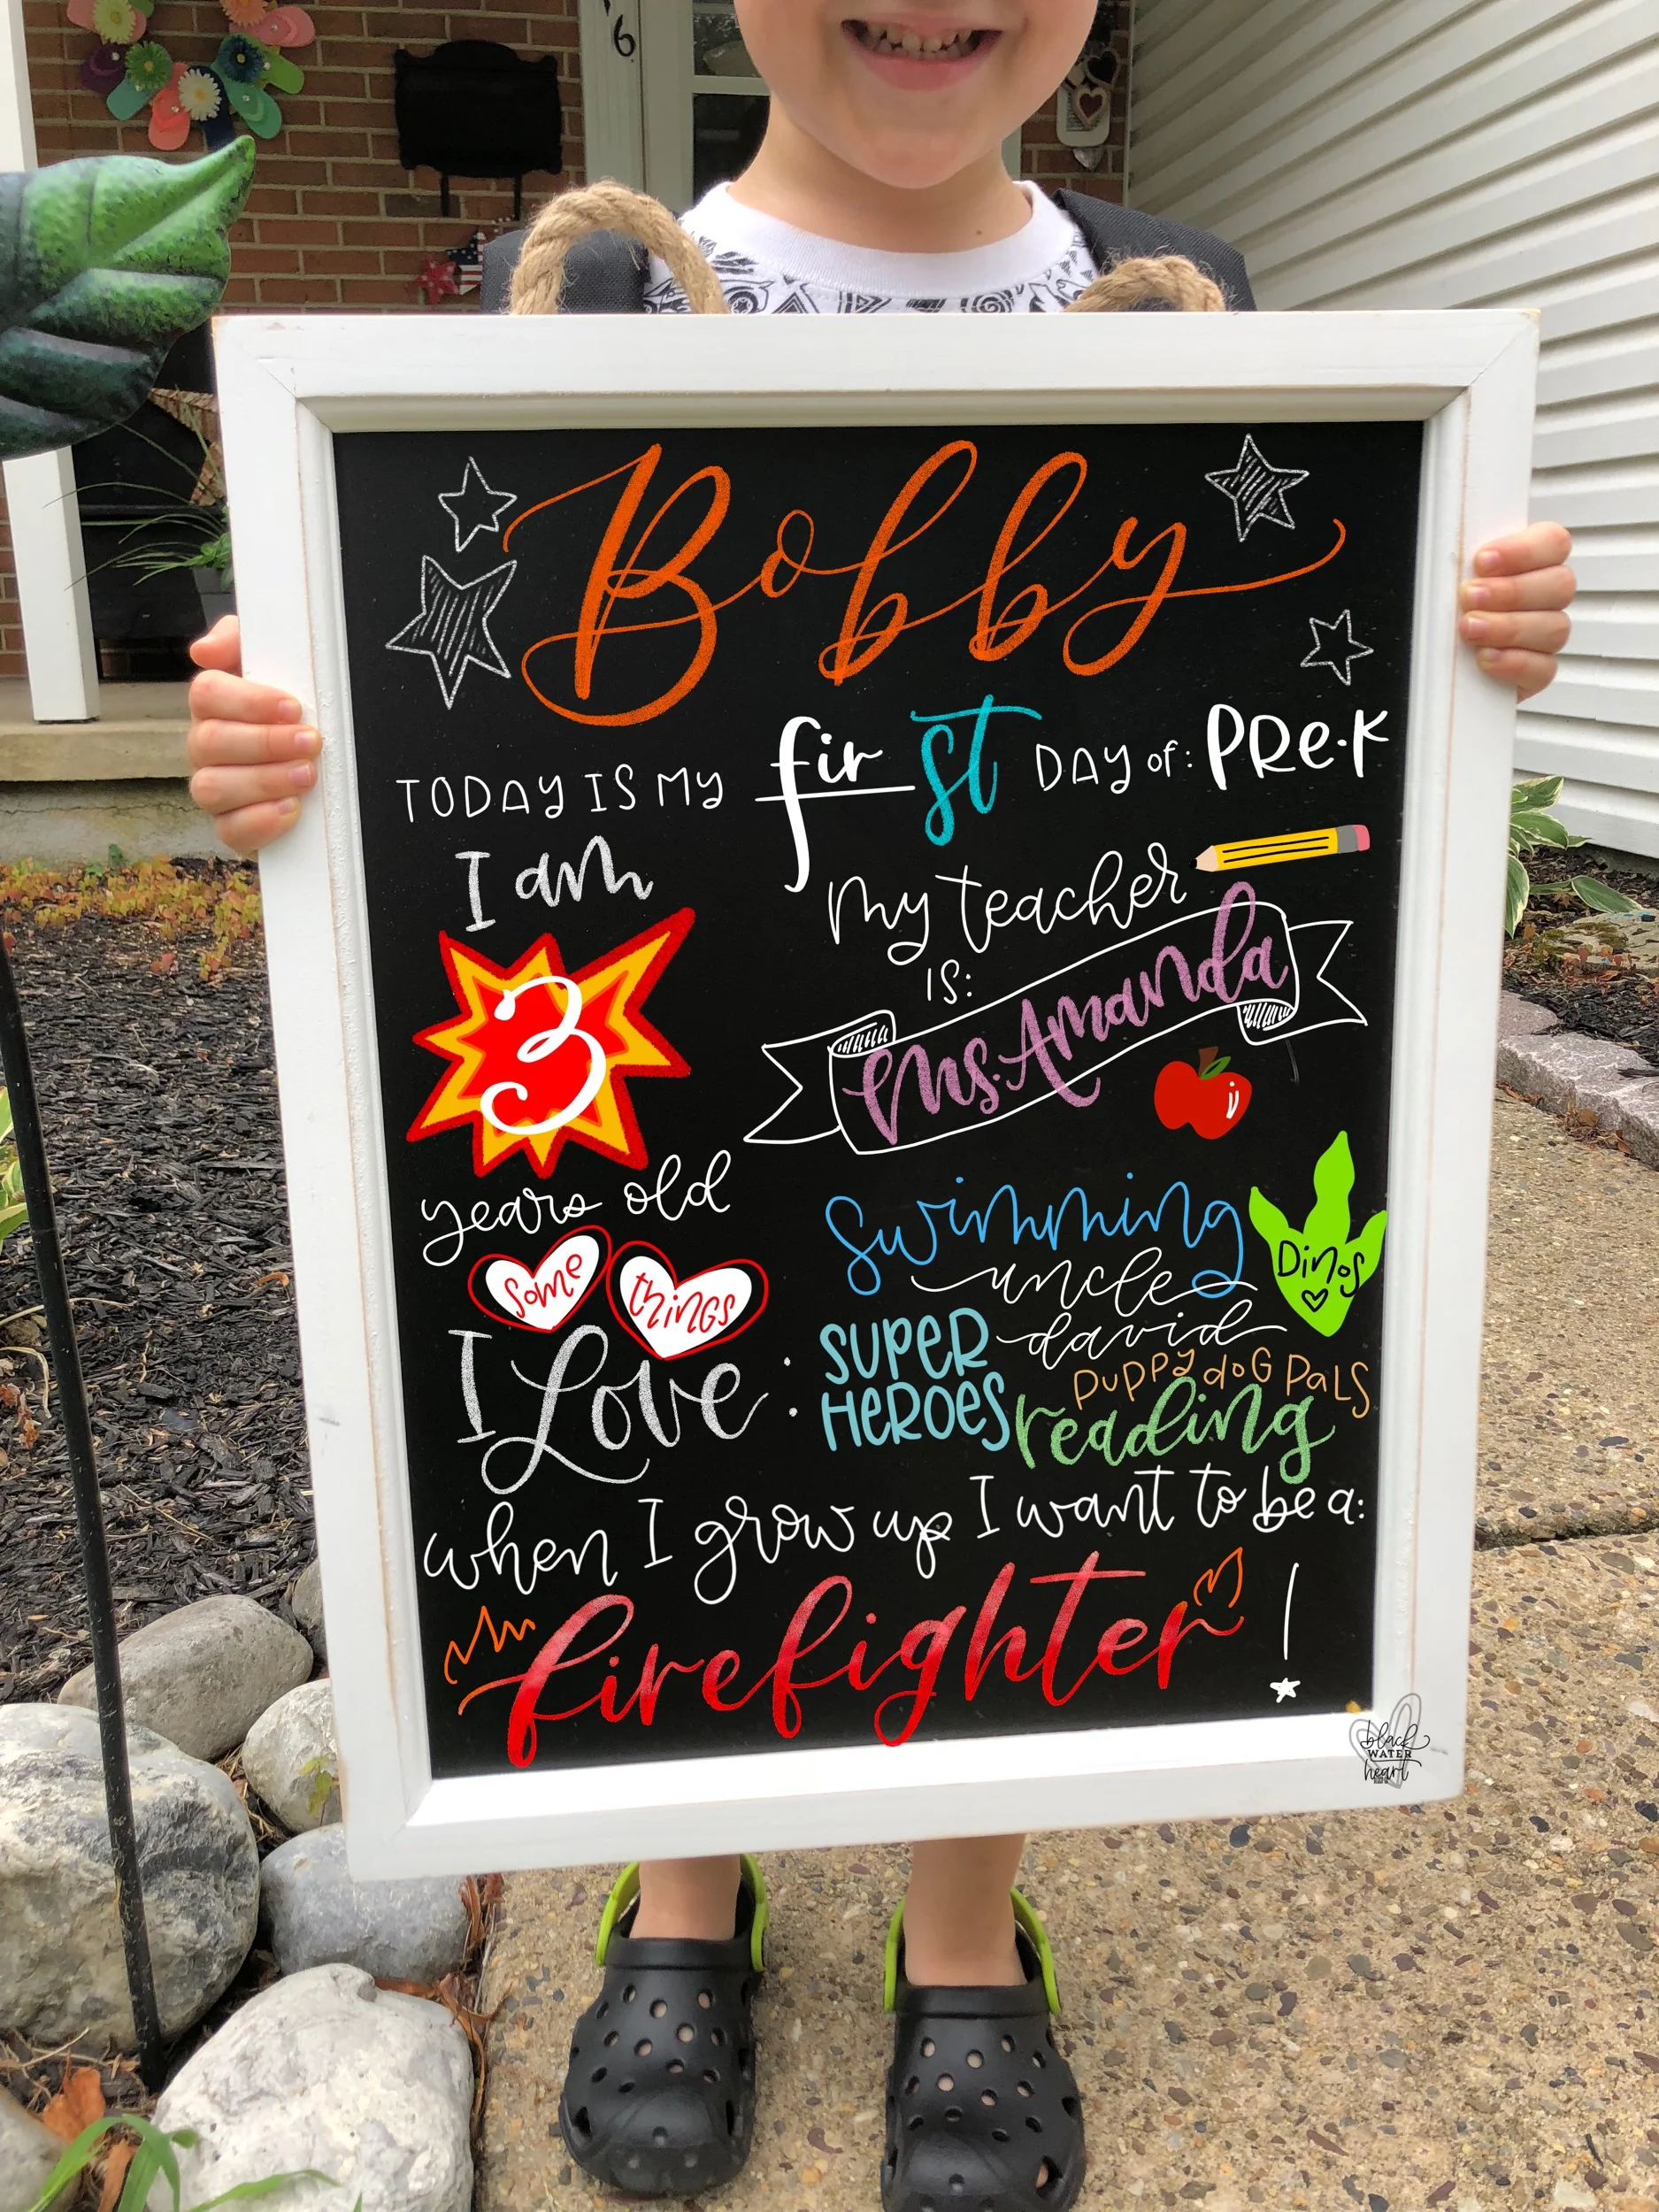 6
Bobby
TODAY IS MY first DAY of: PRe-K
I am
3
years old
my teacher
IS:
Ms. Amanda
some things
I Love:
swimming
uncle
david
Dinos
SUPER
HEROES
puppy doG PaLS
reading
when I grow up I want to be a:
firefighter!
black
WATER
heart